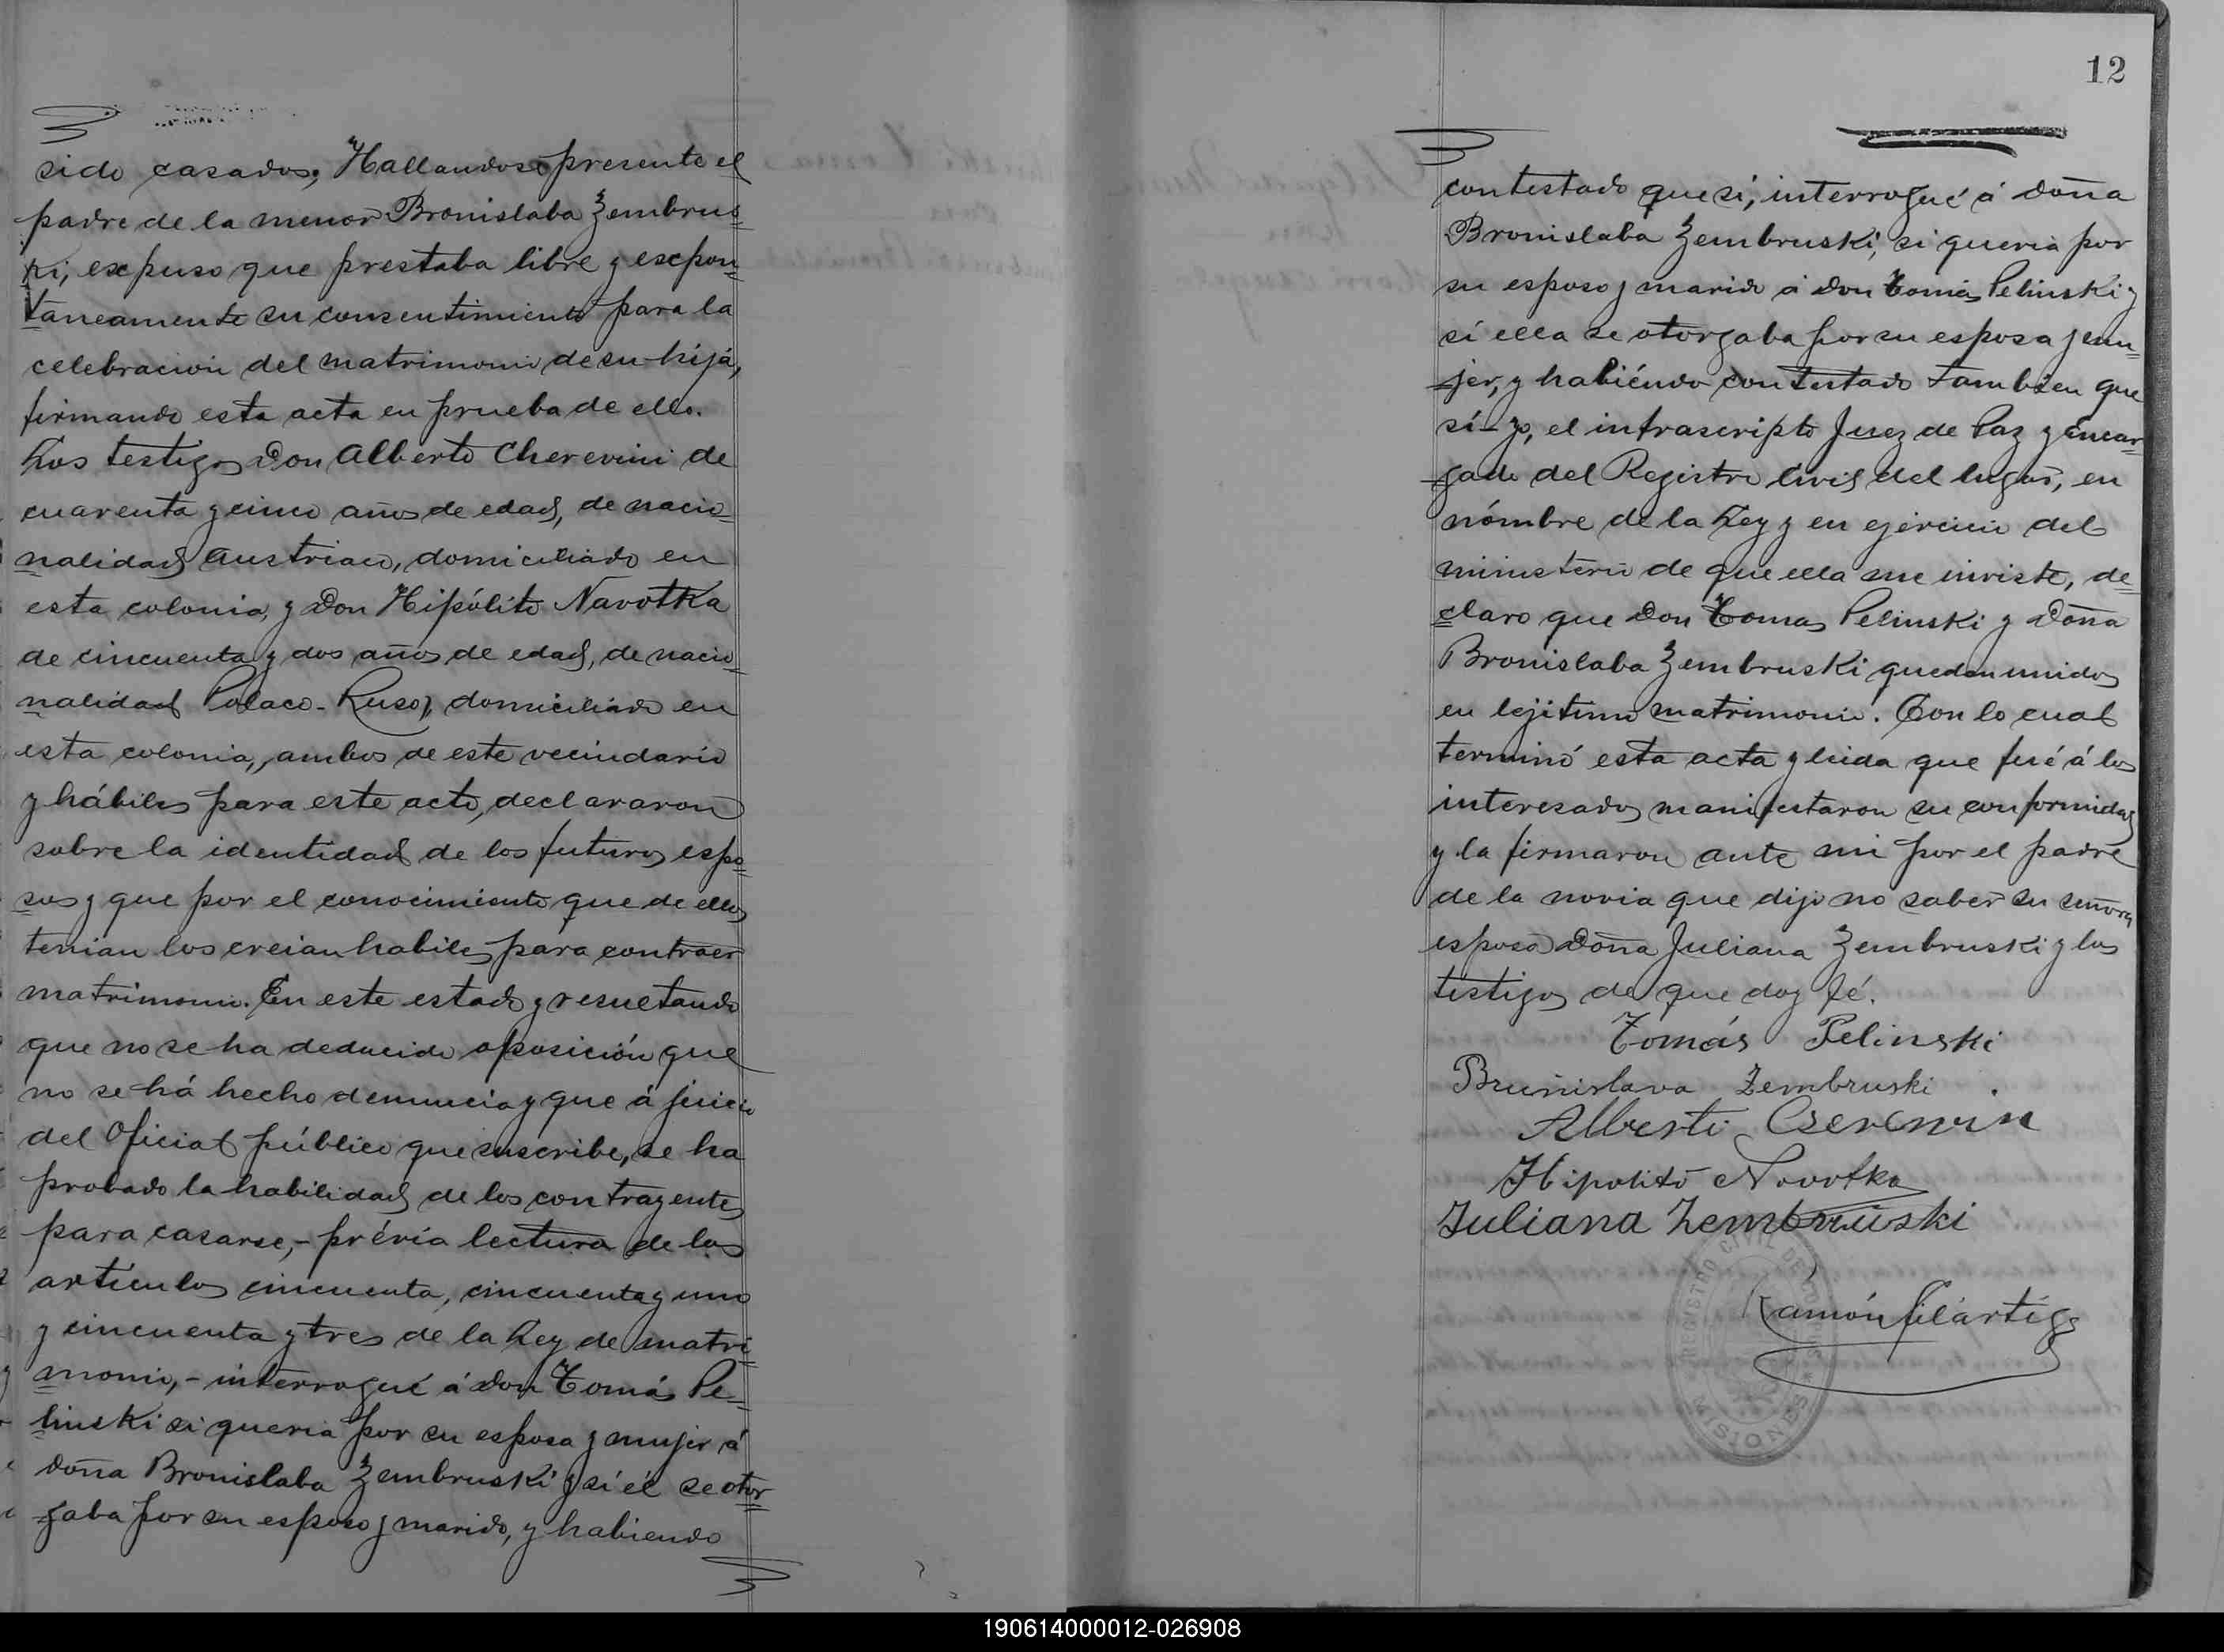 sido casados; Hallandose presente el
padre de la menor Bronislaba Zembrus=
ki, expuso que prestaba libre y expon=
taneamente su consentimiento para la
celebracion del matrimonio de su hijá,
firmando esta acta en prueba de ello.
Los testigos Don Alberto Cherevini de
cuarenta y cinco años de edad, de nacio=
nalidad Austriaco, domiciliado en
esta colonia, y Don Hipólito Navotka
de cincuenta y dos años de edad, de nacio=
nalidad Polaco-Ruso, domiciliado en
esta colonia, ambos de este vecindario
y hábiles para este acto, declararon
sobre la identidad de los futuros espo=
sos y que por el conocimiento que de ellos
tenian los creian habiles para contraer
matrimonio. En este estado y resultando
que no se ha deducido oposición que
no se há hecho denuncia y que á juicio
del Oficial público que suscribe, se ha
probado la habilidad de los contrayentes
para casarse,- prévia lectura de los
artículos cincuenta, cincuenta y uno
y cincuenta y tres de la Ley de matri=
monio,- interrogué á Don Tomás Pe=
linski si queria por su esposa y mujer á
doña Bronislaba Zembruski y sí él se otor=
gaba por su esposo y marido, y habiendo
12
contestado que sí, interrogué á doña
Bronislaba Zembruski, si queria por
su esposo y marido á Don Tomás Pelinski y
sí ella se otorgaba por su esposa y mu=
jer, y habiéndo contestado tambien que
sí- yo, el infrascripto Juez de Paz y encar=
gado del Registro Civil del lugar, en
nómbre de la Ley y en ejercicio del
ministerio de que ella me inviste, de=
claro que Don Tomas Pelinski y Doña
Bronislaba Zembruski quedan unidos
en lejitimo matrimonio. Con lo cual
terminó esta acta y leida que fué á los
interesados manifestaron su conformidad
y la firmaron ante mi por el padre
de la novia que dijo no saber su señora
esposa Doña Juliana Zembruski y los
testigos de que doy fé.
Tomás Pelinski
Brunislava Zembruski
Alberti Cserenvin
Hipolito Novotka
Juliana Zembruiski
REGISTRO CIVIL DE
MISIONES
Ramón
190614000012-026908